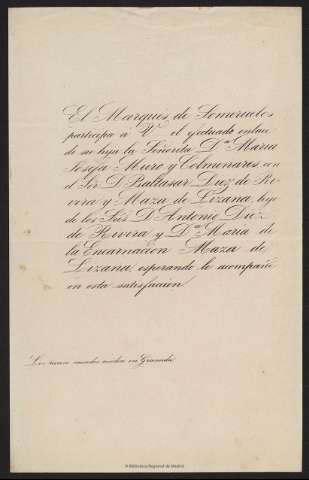 El Marques de Someruelos
participa á V. el efectuado enlace
de su hija la Señorita Dª. Maria
Josefa Muro y Colmenares, con
el Sor. D. Baltasar Diez de Ri-
vera y Maza de Lizana, hijo
de los Sres. D. Antonio Diez
de Rivera y Dª. Maria de
la Encarnacion Maza de
Lizana, esperando le acompañe
en esta satisfaccion.
Los recien casados residen en Granada.
© Biblioteca Regional de Madrid